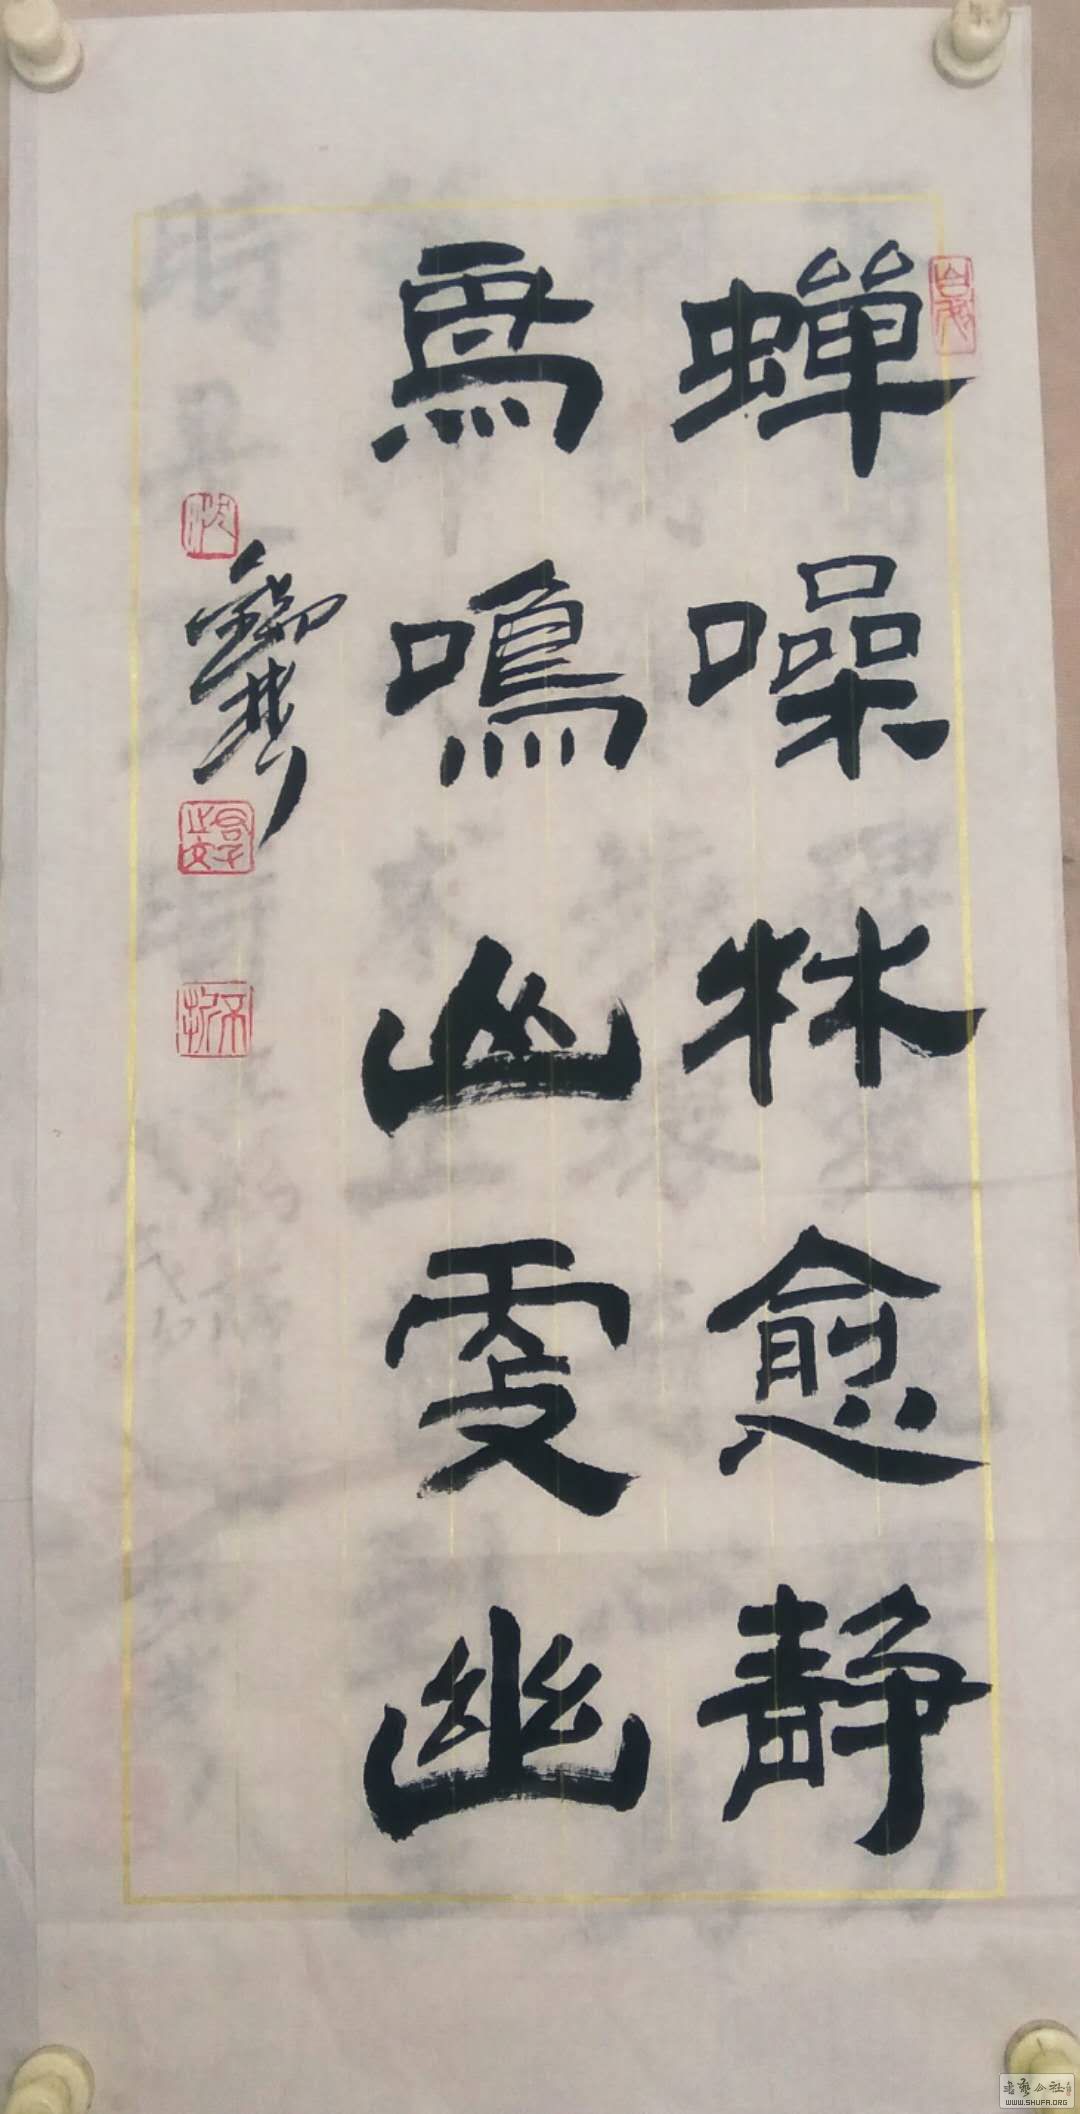 蝉噪林愈静
鳥鳴山更幽
WWW.SHUFA.ORG